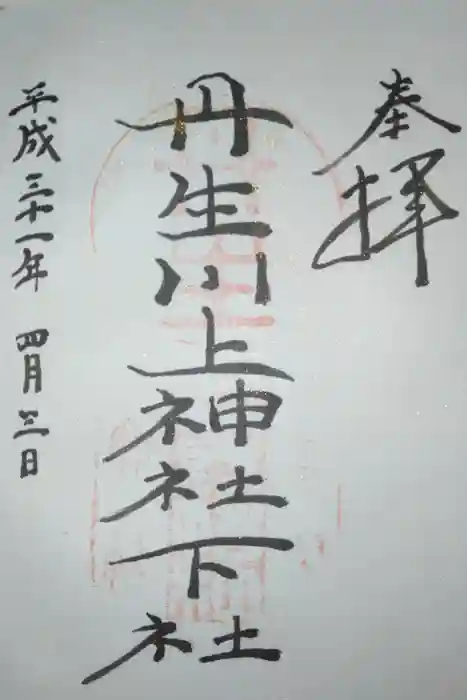 奉拝
丹生川上神社下社
平成三十一年 四月三日